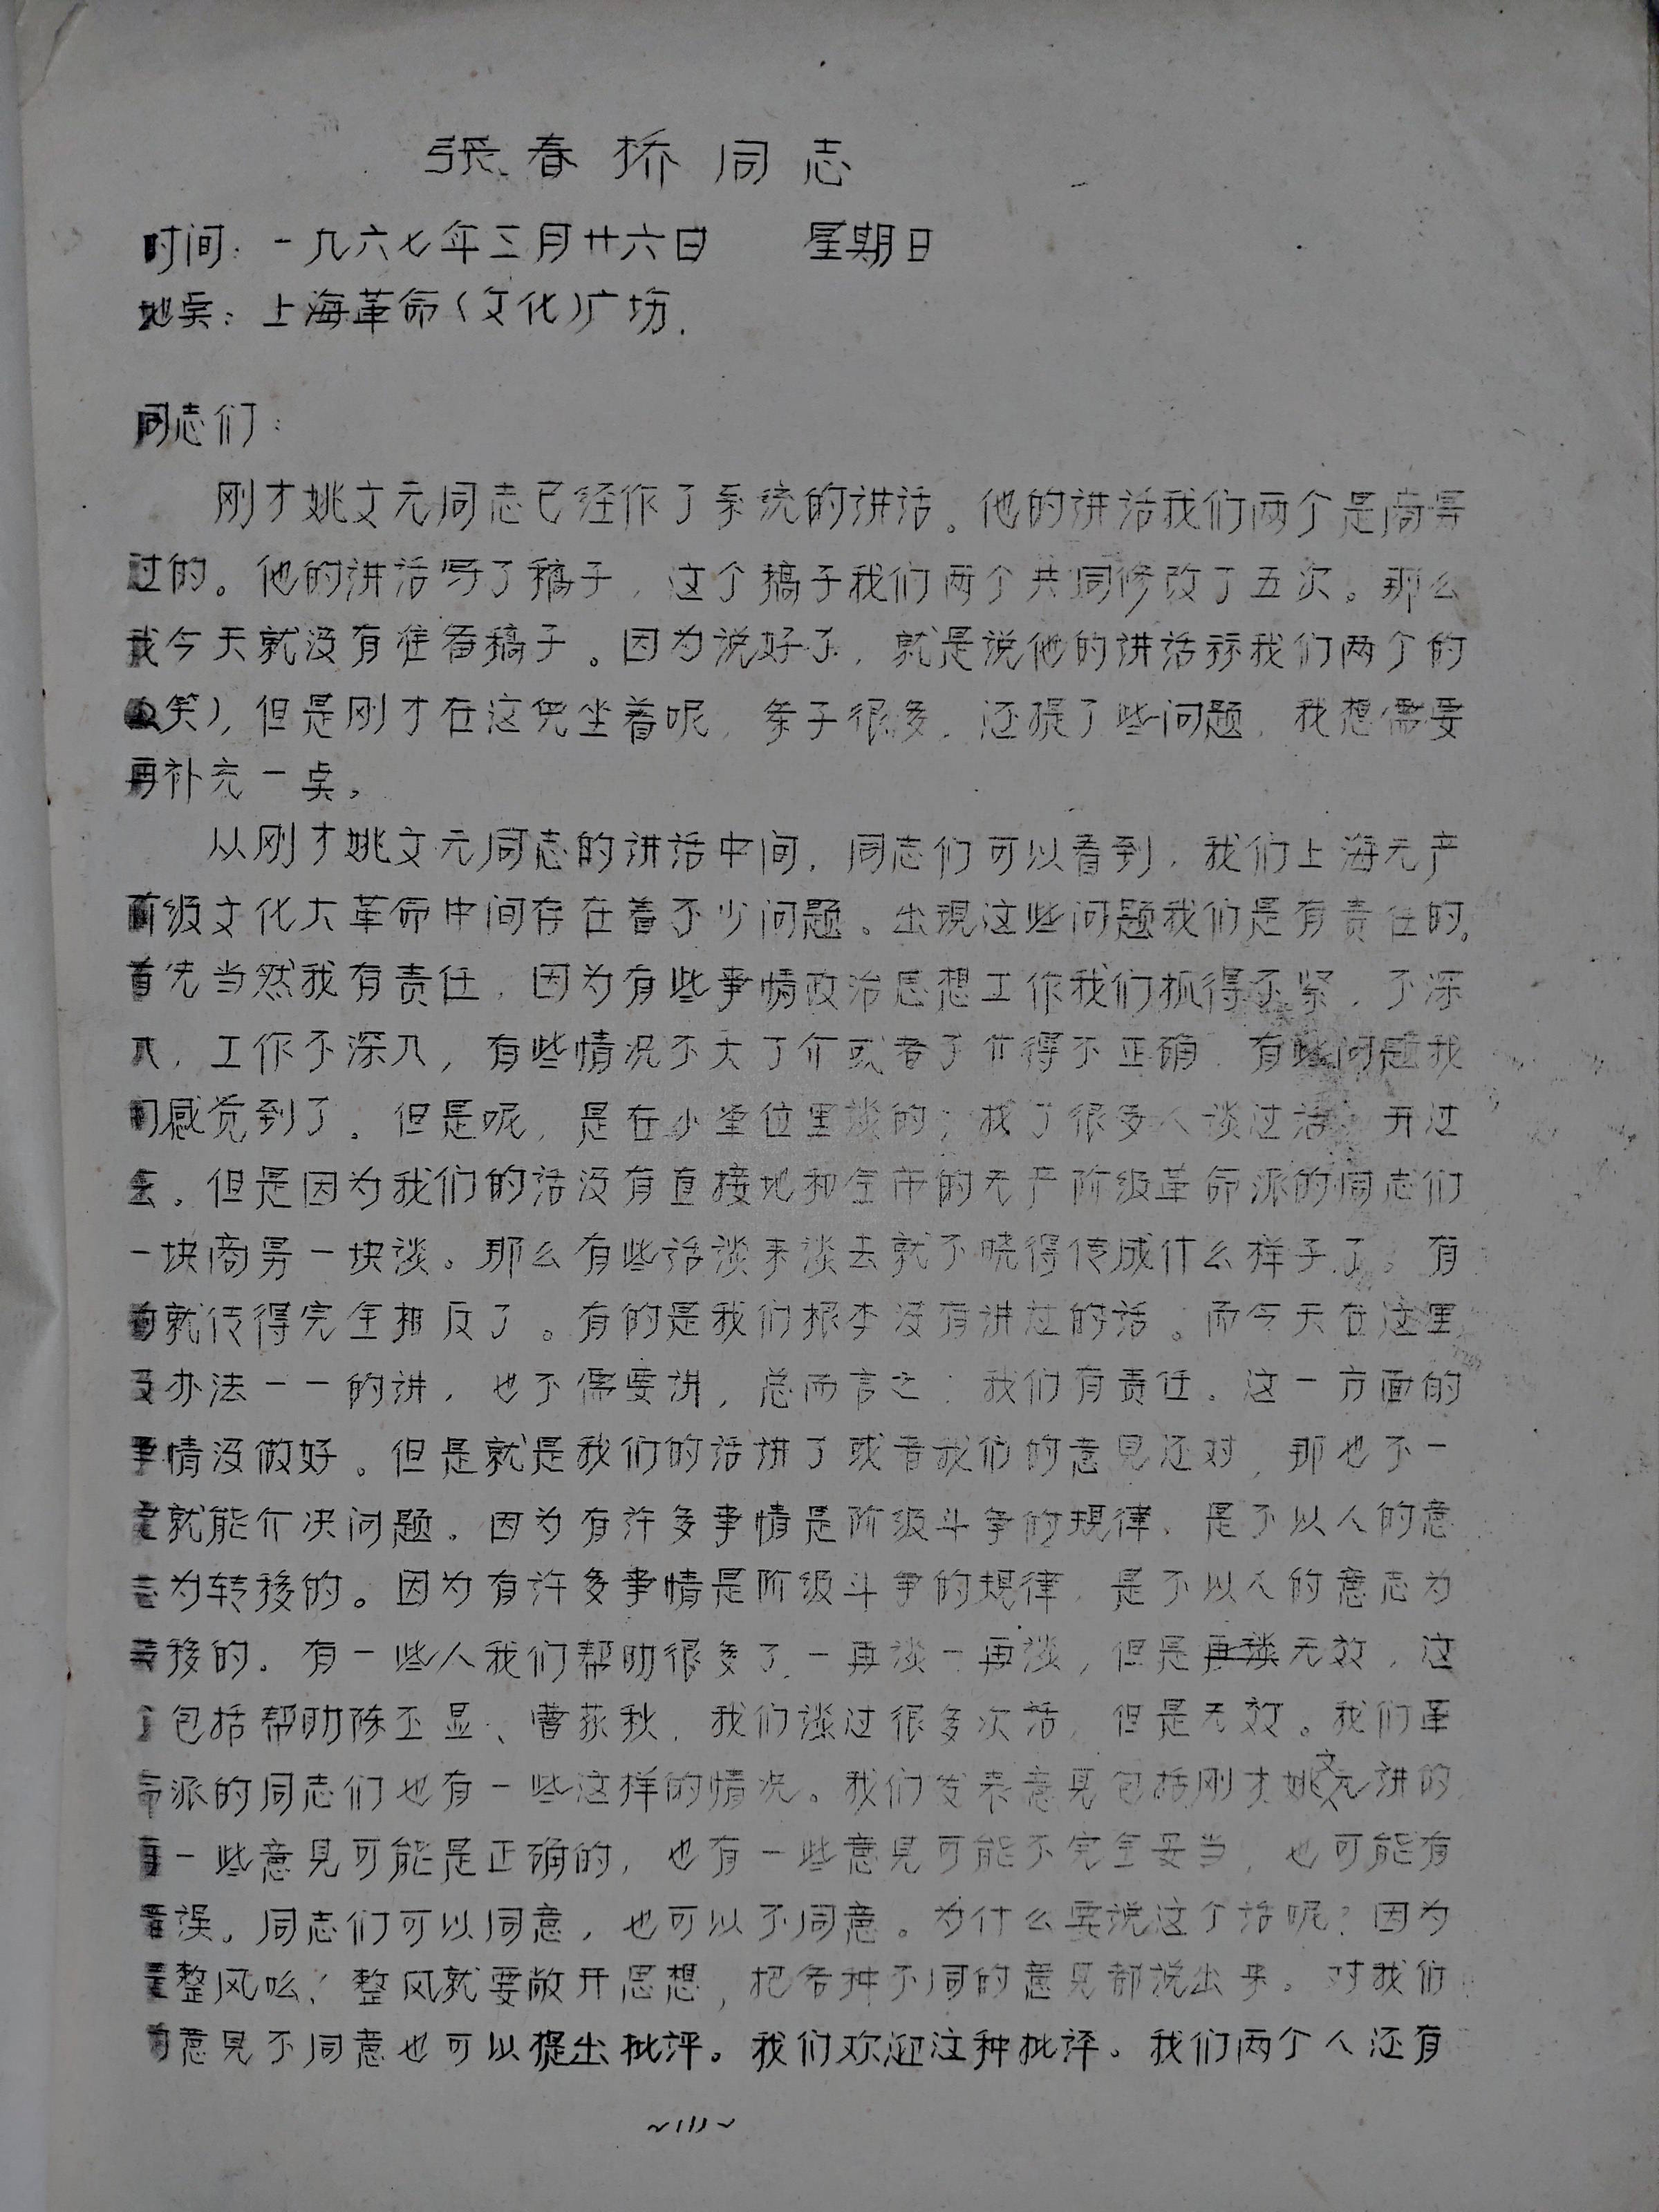 张春桥同志
时间：一九六七年三月廿六日　　星期日
地奌：上海革命（文化）广场.
同志们：
刚才姚文元同志已经作了系统的讲话。他的讲话我们两个是商量
过的。他的讲话写了稿子，这个搞子我们两个共同修改了五次。那么
我今天就没有准备稿子。因为说好了，就是说他的讲话称我们两个的
笑），但是刚才在这儿坐着呢，条子很多，还提了些问题，我想需要
再补充一奌。
从刚才姚文元同志的讲话中间，同志们可以看到，我们上海无产
阶级文化大革命中间存在着不少问题。出现这些问题我们是有责任的。
首先当然我有责任，因为有些事情政治思想工作我们抓得不紧，不深
入，工作不深入，有些情况不大了介或者了介得不正确，有些问题我
们感觉到了。但是呢，是在小单位里谈的，找了很多人谈过话，开过
会。但是因为我们的话没有直接地和全市的无产阶级革命派的同志们
一块商量一块谈。那么有些话谈来谈去就不晓得传成什么样子了。有
的就传得完全相反了。有的是我们根本没有讲过的话。而今天在这里
没办法一一的讲，也不需要讲，总而言之：我们有责任。这一方面的
事情没做好。但是就是我们的话讲了或者我们的意见还对，那也不一
定就能介决问题。因为有许多事情是阶级斗争的规律，是不以人的意
志为转移的。因为有许多事情是阶级斗争的规律，是不以人的意志为
转移的。有一些人我们帮助很多了，一再谈一再谈，但是再谈无效，这
包括帮助陈丕显、曹荻秋，我们谈过很多次话，但是无效。我们革
命派的同志们也有一些这样的情况。我们发表意见包括刚才姚文元讲的
有一些意见可能是正确的，也有一些意见可能不完全妥当，也可能有
错误。同志们可以同意，也可以不同意。为什么要说这个话呢？因为
是整风吆！整风就要敞开思想，把各种不同的意见都说出来。对我们
的意见不同意也可以提出批评。我们欢迎这种批评。我们两个人还有